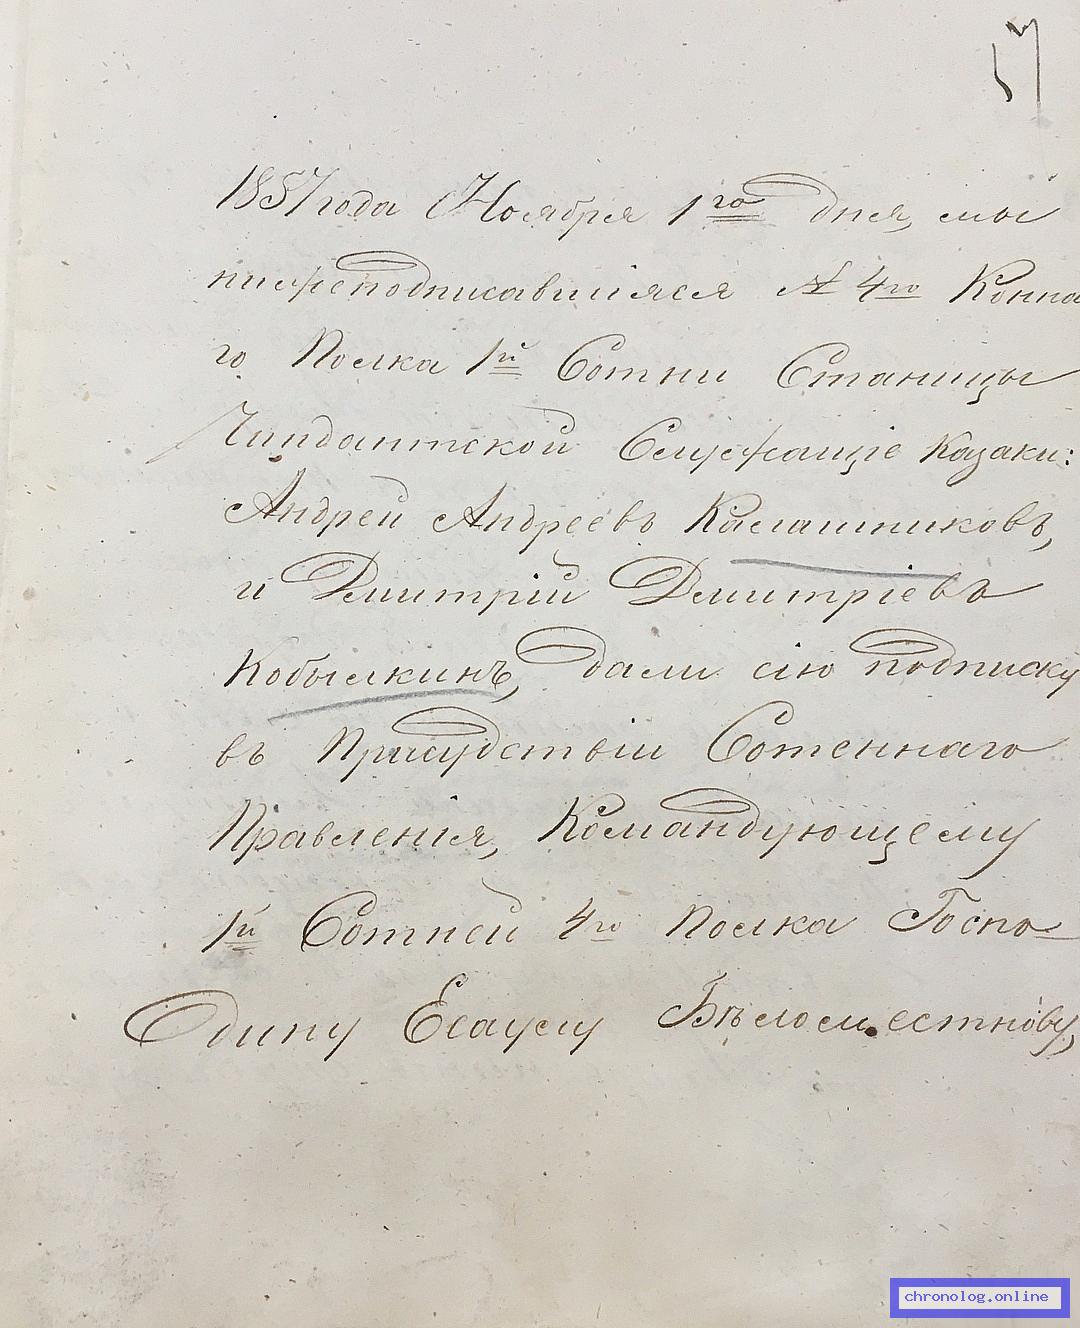 57
1857 года Ноября 1го дня, мы
нижеподписавшіяся № 4го Конна
го Полка 1й Сотни Станицы
Чиндантской Служащіе казаки:
Андрей Андреевъ Калашниковъ,
и Дмитрій Дмитріевъ
Кобылкинъ, дали сію подписку
въ Присудствіи Сотеннаго
Правленія, Командующему
1й Сотней 4го Полка Госпо-
дину Есаулу Бѣломестнову,
chronolog.online